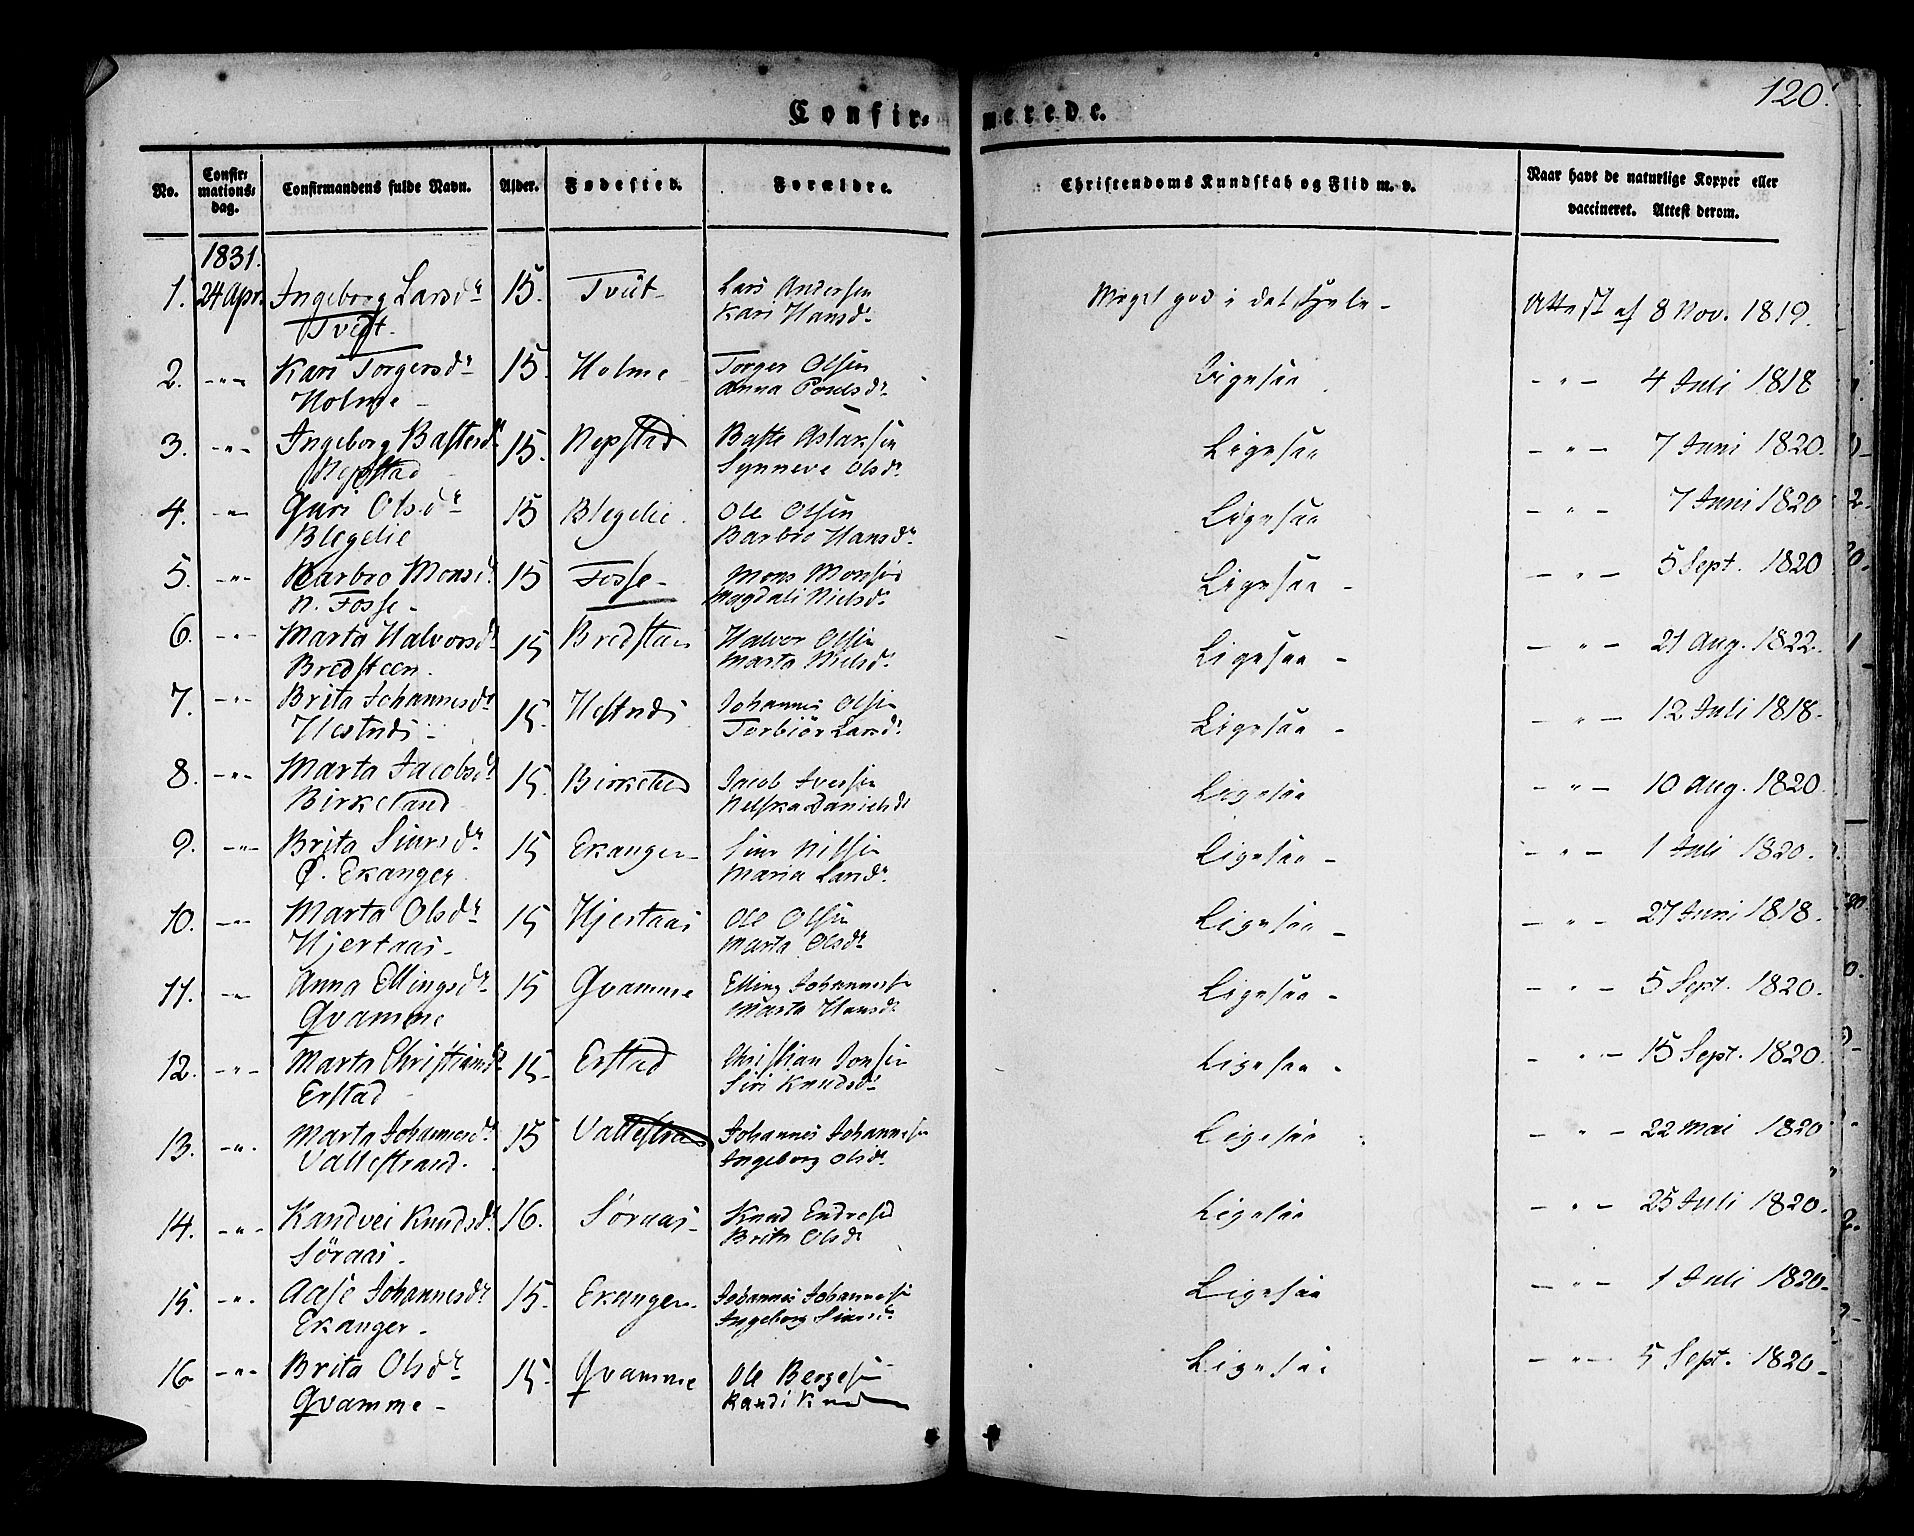 120.
Confirmerede.
No. Confirmationsdag. Confirmandens fulde Navn. Alder. Fødested. Forældre. Christendoms Kundskab og Flid m. v. Naar havt de naturlige Kopper eller vaccineret. Attest derom.
1831.
1. 24 Apr. Ingeborg Larsdr 15. Tvüt Lars Andersen Meget god i det Hele - Attest af 8 Nov. 1819.
Kari Hansdr
2. -"- Kari Torgersdr 15. Holme Torger Olsen Ligesaa - " - 4 Juli 1818
Holme - Anna Poulsdr
3. -"- Ingeborg Bastesdr 15. Nepstad Baste Aslaksen Ligesaa - " - 7 Juni 1820.
Nepstad Synneve Olsdr
4. -"- Guri Olsdr 15 Blegelie. Ole Olsen Ligesaa - " - 7 Juni 1820
Blegelie Barbro Hansdr
5. -"- Barbro Monsdr 15 Fosse - Mons Monsen Ligesaa - - " - 5 Sept. 1820
N. Fosse - Magdali Nielsdr
6. -"- Marta Halvorsdr 15 Bredsteen Halvor Olsen Ligesaa - - " - 21 Aug. 1822.
Bredsteen. Marta Nielsdr
7. -"- Brita Johannesdr 15. Hestnes Johannes Olsen Ligesaa - - " - 12 Juli 1818.
Hestnes - Torbiør Larsdr
8. -"- Marta Jacobsdr 15. Birkeland Jacob Iversen Ligesaa - " - 10 Aug. 1820.
Birkeland Danielsdr
9. -"- Brita Siursdr 15 Ekanger - Siur Nilsen Ligesaa - - " - 1 Juli 1820.
Ø. Ekanger Maria Larsdr
10. -"- Marta Olsdr 15 Hjertaas Ole Olsen Ligesaa - - " - 27 Juni 1818.
Hjertaas - Marta Olsdr
11. -"- Anna Ellingsdr 15 Qvamme Elling Johannesen Ligesaa - - " - 5 Sept. 1820.
Qvamme Marta Hansdr
12. -"- Marta Christiansdr 15- Erstad Christian Jonsen Ligesaa - - " - 15 Sept. 1820.
Erstad Siri Knudsdr
13. -"- Marta Johannesdr 15 Vallestrand Johannes Johannesen Ligesaa - " - 22 Mai 1820
Vallestrand. Ingeborg Olsdr
14. -"- Randvei Knudsdr 16. Söraas - Knud Endresen Ligesaa - " - 25 Juli 1820.
Söraas. Brita Olsdr
15. -"- Aase Johannesdr 15. Ekanger. Johannes Johannesen Ligesaa - " - 1 Juli 1820-
Ekanger - Ingeborg Siursdr
16 -"- Brita Olsdr 15. Qvamme Ole Bergesen Ligesaa - " - 5 Sept. 1820-
Qvamme - Randi